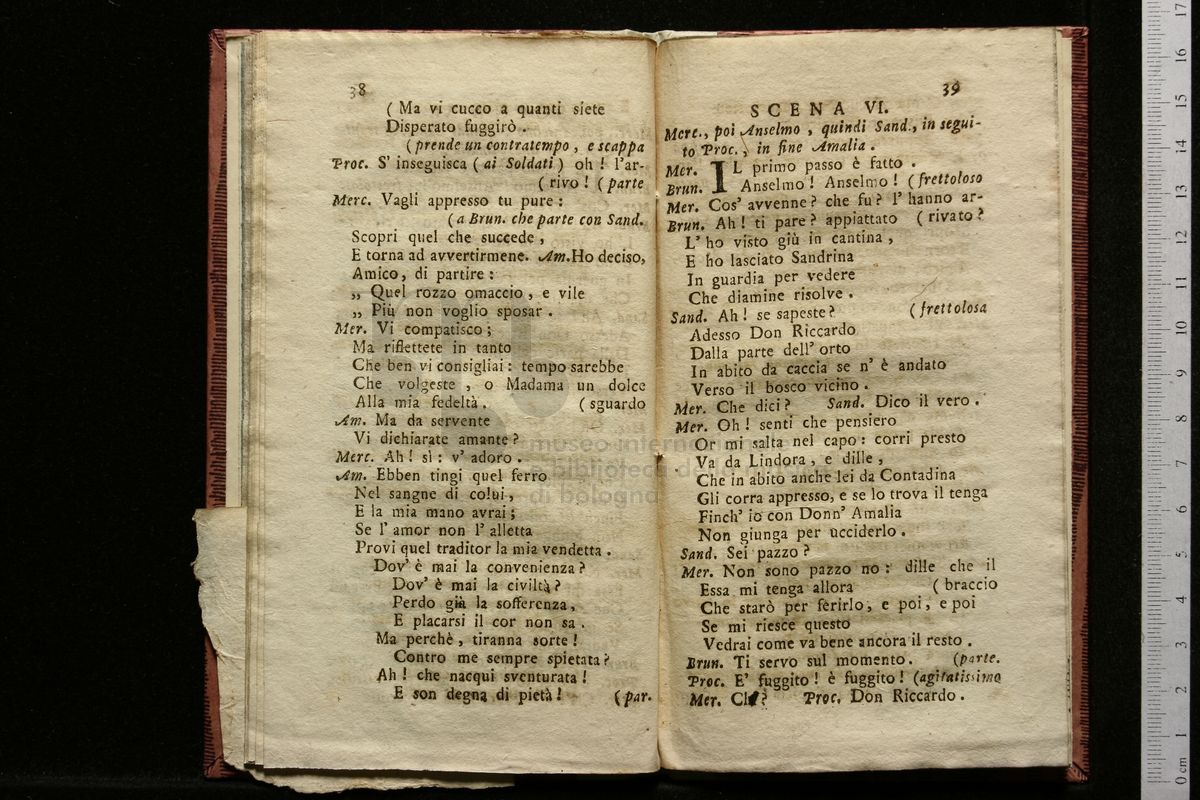 38
( Ma vi cucco a quanti siete
Disperato fuggirò .
( prende un contratempo , e scappa
Proc. S' inseguisca ( ai Soldati ) oh ! l'ar-
( rivo ! ( parte
Merc. Vagli appresso tu pure :
( a Brun. che parte con Sand.
Scopri quel che succede ,
E torna ad avvertirmene. Am. Ho deciso,
Amico, di partire :
„ Quel rozzo omaccio , e vile
„ Più non voglio sposar .
Mer. Vi compatisco ;
Ma riflettete in tanto
Che ben vi consigliai : tempo sarebbe
Che volgeste , o Madama un dolce
Alla mia fedeltà . ( sguardo
Am. Ma da servente
Vi dichiarate amante ?
Merc. Ah ! sì : v' adoro .
Am. Ebben tingi quel ferro
Nel sangue di colui ,
E la mia mano avrai ;
Se l' amor non l' alletta
Provi quel traditor la mia vendetta .
Dov' è mai la convenienza ?
Dov' è mai la civiltà ?
Perdo già la sofferenza ,
E placarsi il cor non sa .
Ma perchè , tiranna sorte !
Contro me sempre spietata ?
Ah ! che nacqui sventurata !
E son degna di pietà ! ( par.
39
SCENA VI.
Merc., poi Anselmo , quindi Sand., in segui-
to Proc., in fine Amalia .
Mer. IL primo passo è fatto .
Brun. Anselmo ! Anselmo ! ( frettoloso
Mer. Cos' avvenne ? che fu ? l' hanno ar-
Brun. Ah ! ti pare ? appiattato ( rivato ?
L' ho visto giù in cantina ,
E ho lasciato Sandrina
In guardia per vedere
Che diamine risolve .
Sand. Ah ! se sapeste ? ( frettolosa
Adesso Don Riccardo
Dalla parte dell' orto
In abito da caccia se n' è andato
Verso il bosco vicino .
Mer. Che dici ? Sand. Dico il vero .
Mer. Oh ! senti che pensiero
Or mi salta nel capo : corri presto
Va da Lindora , e dille ,
Che in abito anche lei da Contadina
Gli corra appresso, e se lo trova il tenga
Finch' io con Donn' Amalia
Non giunga per ucciderlo .
Sand. Sei pazzo ?
Mer. Non sono pazzo no : dille che il
Essa mi tenga allora ( braccio
Che starò per ferirlo , e poi , e poi
Se mi riesce questo
Vedrai come va bene ancora il resto .
Brun. Ti servo sul momento . (parte.
Proc. E' fuggito ! è fuggito ! (agitatissimo
Mer. Chi ? Proc. Don Riccardo .
museo internazionale
e biblioteca della musica
di bologna
0 cm 1 2 3 4 5 6 7 8 9 10 11 12 13 14 15 16 17